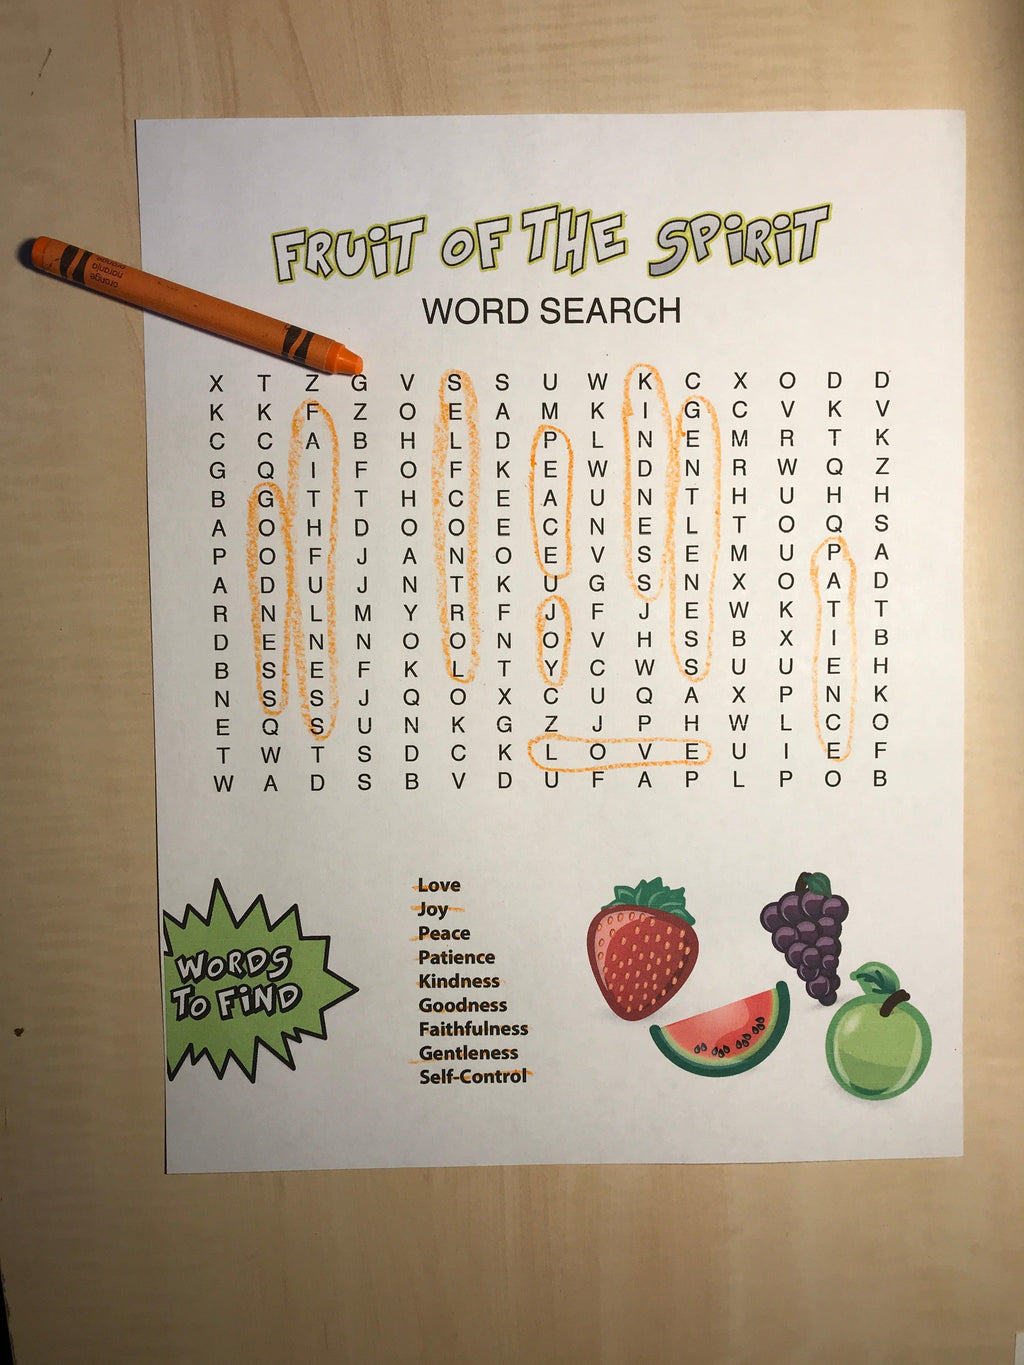 FRUIT OF THE SPIRIT
WORD SEARCH
orange
naranja
orange
X T Z G V S S U W K C X O D D
K K F Z O E A M K I G C V K V
C C A B H L D P L N E M R T K
G Q I F O F K E W D N R W Q Z
B G T T H C E A U N T H U H H
A O H D O O E C N E L T O Q S
P O F J A N O E V S E M U P A
A D U J N T K U G S N X O A D
R N L M Y R F J F J E W K T T
D E N N O O N O V H S B X I B
B S E F K L T Y C W S U U E H
N S S J Q O X C U Q A X P N K
E Q S U N K G Z J P H W L C O
T W T S D C K L O V E U I E F
W A D S B V D U F A P L P O B
WORDS
TO FIND
Love
Joy
Peace
Patience
Kindness
Goodness
Faithfulness
Gentleness
Self-Control